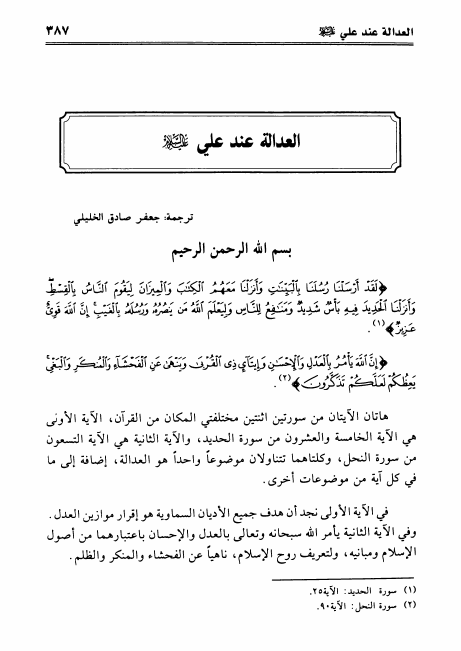 العدالة عند علي عليه السلام
٣٨٧
العدالة عند علي عليه السلام
ترجمة: جعفر صادق الخليلي
بسم الله الرحمن الرحيم
﴿لَقَدْ أَرْسَلْنَا رُسُلَنَا بِالْبَيِّنَاتِ وَأَنزَلْنَا مَعَهُمُ الْكِتَابَ وَالْمِيزَانَ لِيَقُومَ النَّاسُ بِالْقِسْطِ
وَأَنزَلْنَا الْحَدِيدَ فِيهِ بَأْسٌ شَدِيدٌ وَمَنَافِعُ لِلنَّاسِ وَلِيَعْلَمَ اللَّهُ مَن يَنصُرُهُ وَرُسُلَهُ بِالْغَيْبِ إِنَّ اللَّهَ قَوِيٌّ
عَزِيزٌ﴾(١).
﴿إِنَّ اللَّهَ يَأْمُرُ بِالْعَدْلِ وَالْإِحْسَانِ وَإِيتَاءِ ذِي الْقُرْبَى وَيَنْهَى عَنِ الْفَحْشَاءِ وَالْمُنكَرِ وَالْبَغْيِ
يَعِظُكُمْ لَعَلَّكُمْ تَذَكَّرُونَ﴾(٢).
هاتان الآيتان من سورتين اثنتين مختلفتي المكان من القرآن، الآية الأولى
هي الآية الخامسة والعشرون من سورة الحديد، والآية الثانية هي الآية التسعون
من سورة النحل، وكلتاهما تتناولان موضوعاً واحداً هو العدالة، إضافة إلى ما
في كل آية من موضوعات أخرى.
في الآية الأولى نجد أن هدف جميع الأديان السماوية هو إقرار موازين العدل.
وفي الآية الثانية يأمر الله سبحانه وتعالى بالعدل والإحسان باعتبارهما من أصول
الإسلام ومبانيه، ولتعريف روح الإسلام، ناهياً عن الفحشاء والمنكر والظلم.
(١) سورة الحديد: الآية٢٥.
(٢) سورة النحل: الآية٩٠.